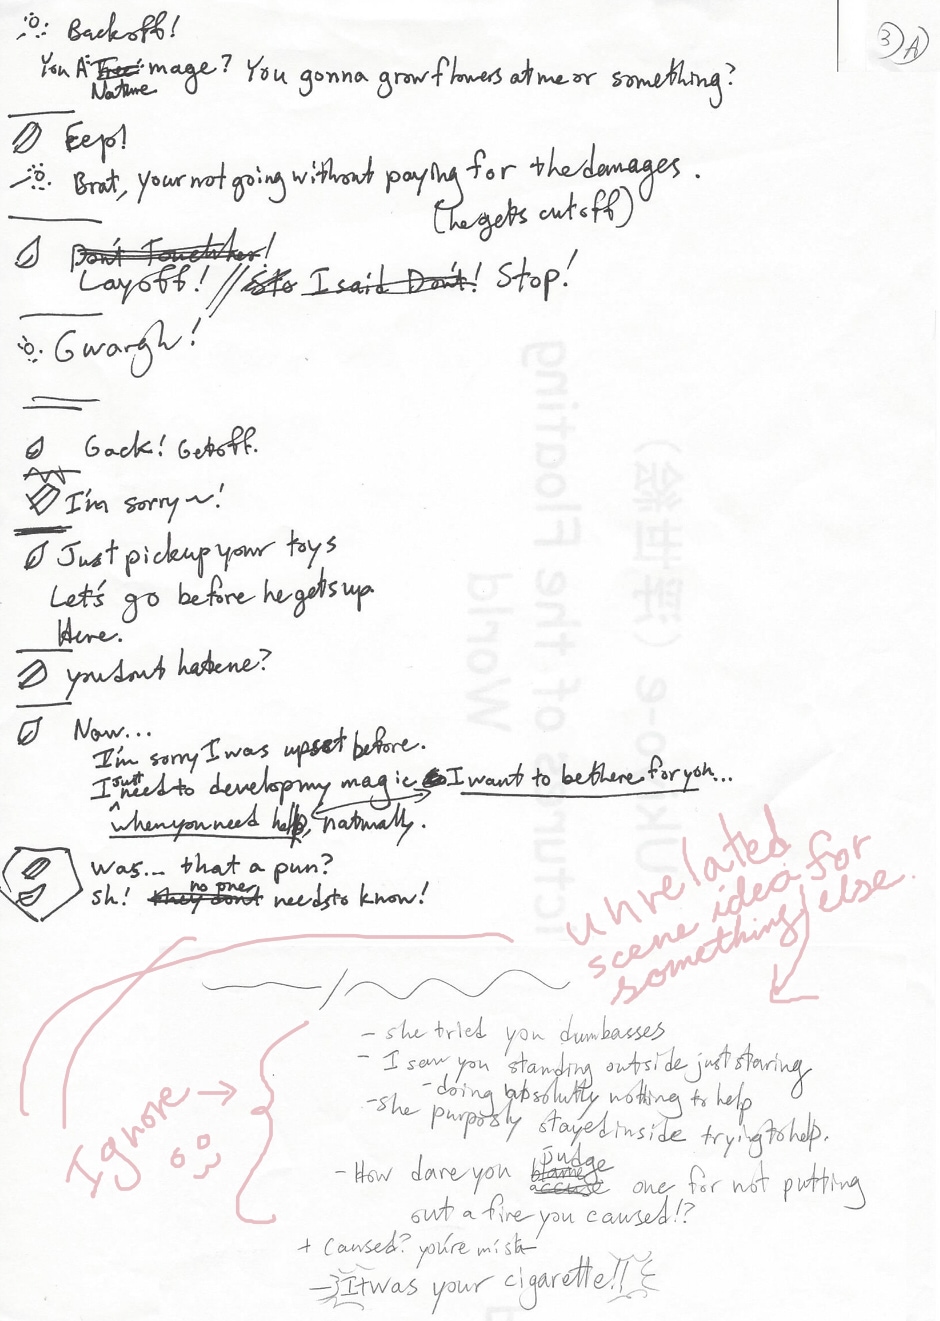 3) A)
Backoff!
You A Tree mage? You gonna grow flowers at me or something?
Nature
Eep!
Brat, your not going without paying for the damages.
(he gets cut off)
Don't Touch her!
Layoff! // Sto I said Don't! Stop!
Gwargh!
Gack! Getoff.
I'm sorry~!
Just pickup your toys
Let's go before he gets up
Here.
you dont hate me?
Now...
I'm sorry I was upset before.
I just need to develop my magic I want to be there for you...
when you need help, naturally.
was... that a pun?
no one
sh! they dont needs to know!
unrelated
scene idea for
something else.
- she tried you dumbasses
- I saw you standing outside just staring
- doing absolutly nothing to help
- She purposly stayed inside trying to help.
Ignore →
judge
- How dare you blame one for not putting
accuse
out a fire you caused!?
+ Caused? you're mista-
- It was your cigarette!!
Ukiyo-e (浮世絵)
ictures of the Floating
World